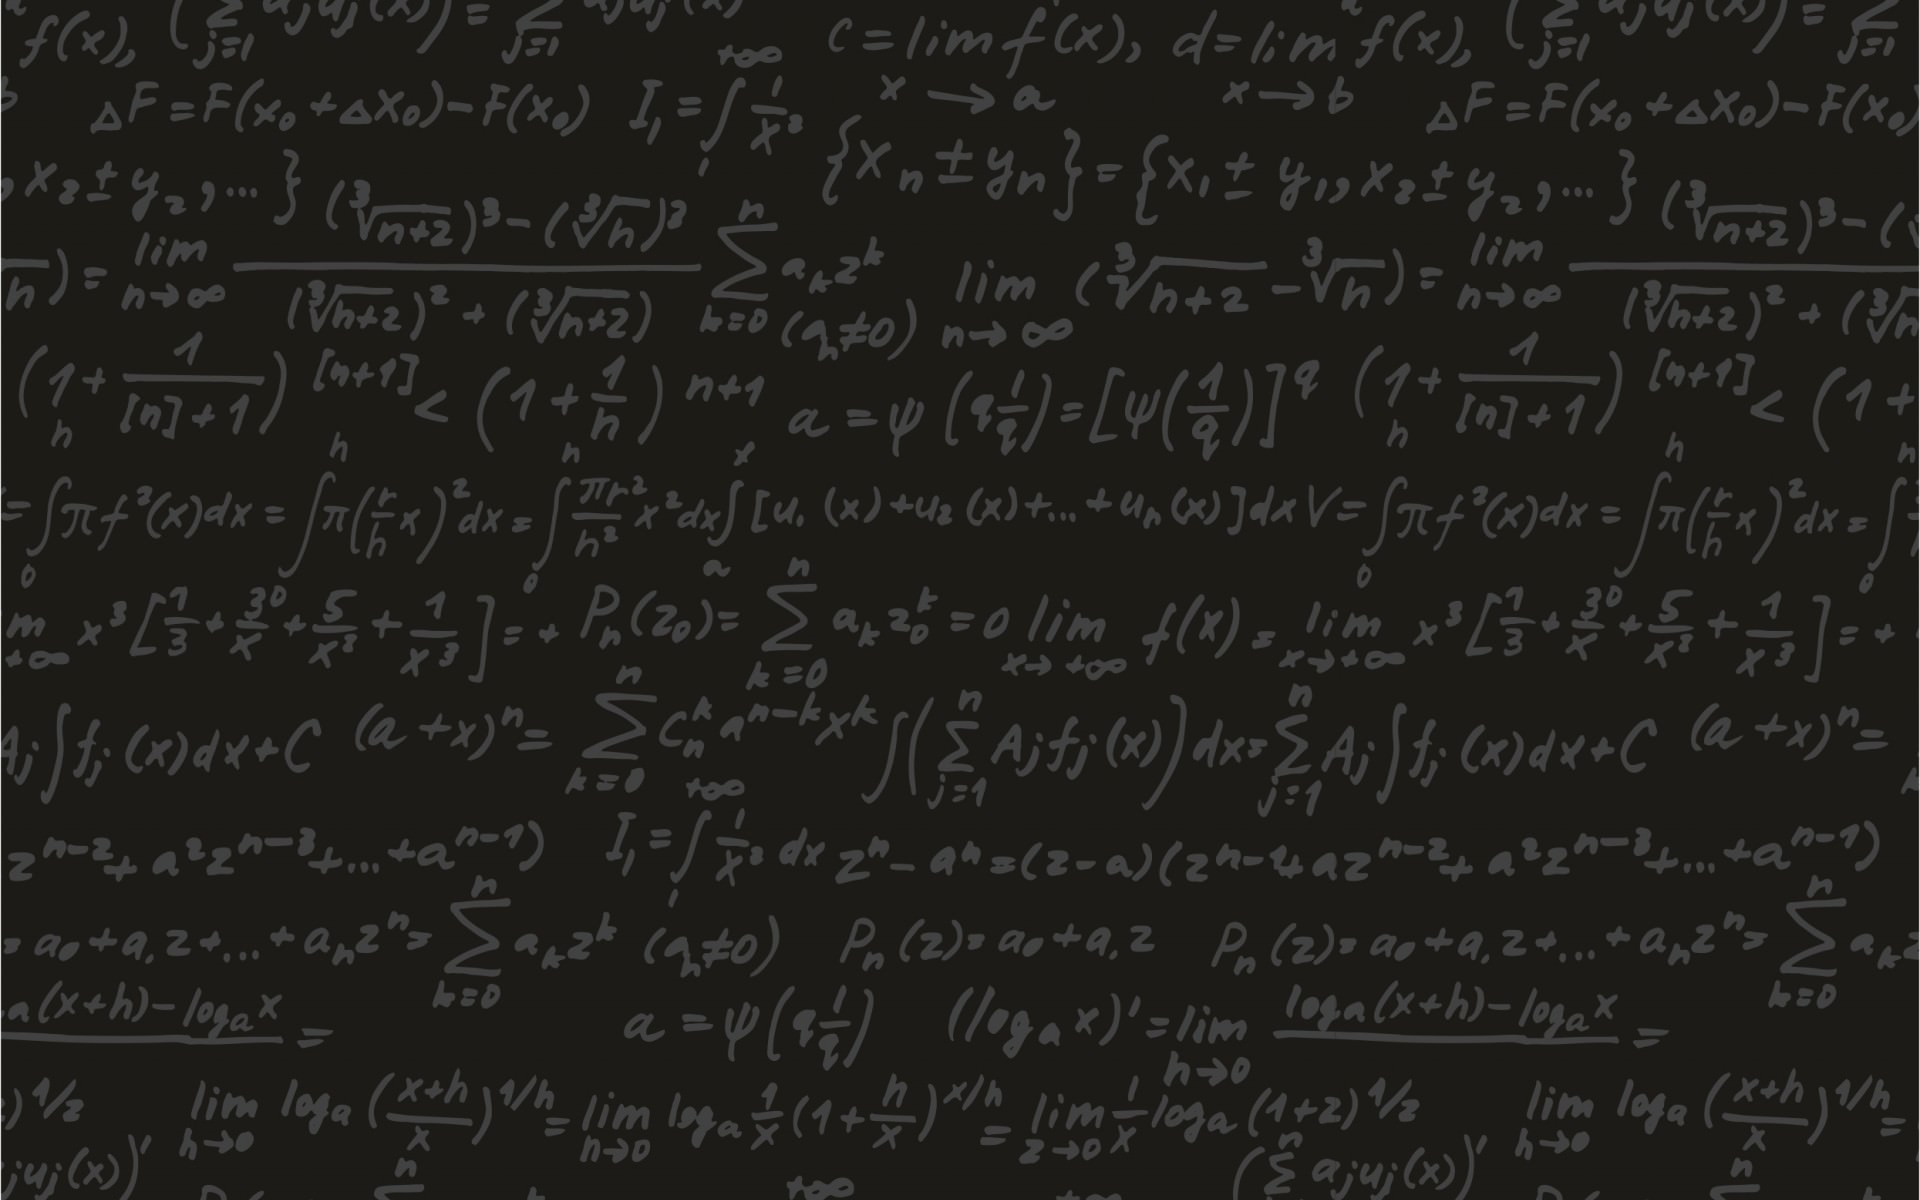 f(x), (∑ j=1 ajuj(x)) = ∑ j=1 ajuj(x) +∞ c = lim x→a f(x), d = lim x→b f(x), (∑ j=1 ajuj(x)) = ∑ j=1
b ΔF = F(x₀ + Δx₀) − F(x₀) I₁ = ∫₁ 1/x² ΔF = F(x₀ + Δx₀) − F(x₀)
, x₂ ± y₂, ... } {xₙ ± yₙ} = {x₁ ± y₁, x₂ ± y₂, ... }
n) = lim n→∞ ((∛(n+2))³ − (∛n)³)/((∛(n+2))² + (∛(n+2)) ∑ k=0 n aₖzᵏ (aₙ≠0) lim n→∞ (∛(n+2) − ∛n) = lim n→∞ ((∛(n+2))³ − (∛
(1 + 1/([n]+1))[n+1] < (1 + 1/n) n+1 a = ψ(q 1/q) = [ψ(1/q)]^q (1 + 1/([n]+1))[n+1] < (1 +
= ∫₀ʰ πf²(x)dx = ∫ʰ π(r/h x)² dx = ∫₀ʰ πr²/h² x²dx ∫ₐˣ [u₁(x) + u₂(x) + ... + uₙ(x)]dx V = ∫₀ʰ πf²(x)dx = ∫ʰ π(r/h x)² dx = ∫₀ʰ
m +∞ x³[1/3 + 3⁰/x + 5/x² + 1/x³] = + Pₙ(z₀) = ∑ k=0 n aₖz₀ᵏ = 0 lim x→+∞ f(x) = lim x→+∞ x³[1/3 + 3⁰/x + 5/x² + 1/x³] = +
Aj∫fj(x)dx + C (a + x)ⁿ = ∑ k=0 n Cₙᵏaⁿ⁻ᵏxᵏ ∫(∑ j=1 n Ajfj(x))dx = ∑ j=1 n Aj∫fj(x)dx + C (a + x)ⁿ =
zⁿ⁻² + a²zⁿ⁻³ + ... + aⁿ⁻¹) I₁ = ∫₁ +∞ 1/x² dx zⁿ − aⁿ = (z − a)(zⁿ⁻¹ + azⁿ⁻² + a²zⁿ⁻³ + ... + aⁿ⁻¹)
= a₀ + a₁z + ... + aₙzⁿ = ∑ k=0 n aₖzᵏ (aₙ≠0) Pₙ(z) = a₀ + a₁z Pₙ(z) = a₀ + a₁z + ... + aₙzⁿ = ∑ k=0 n aₖz
a(x+h) − logₐx = a = ψ(q 1/q) (logₐx)' = lim h→0 (logₐ(x+h) − logₐx) =
)^1/z lim h→0 logₐ((x+h)/x)^1/h = lim n→0 logₐ 1/x (1 + h/x)^x/h = lim z→0 1/x logₐ(1+z)^1/z lim h→0 logₐ((x+h)/x)^1/h =
ajuj(x))' n ∑ +∞ (∑ n ajuj(x))' n ∑